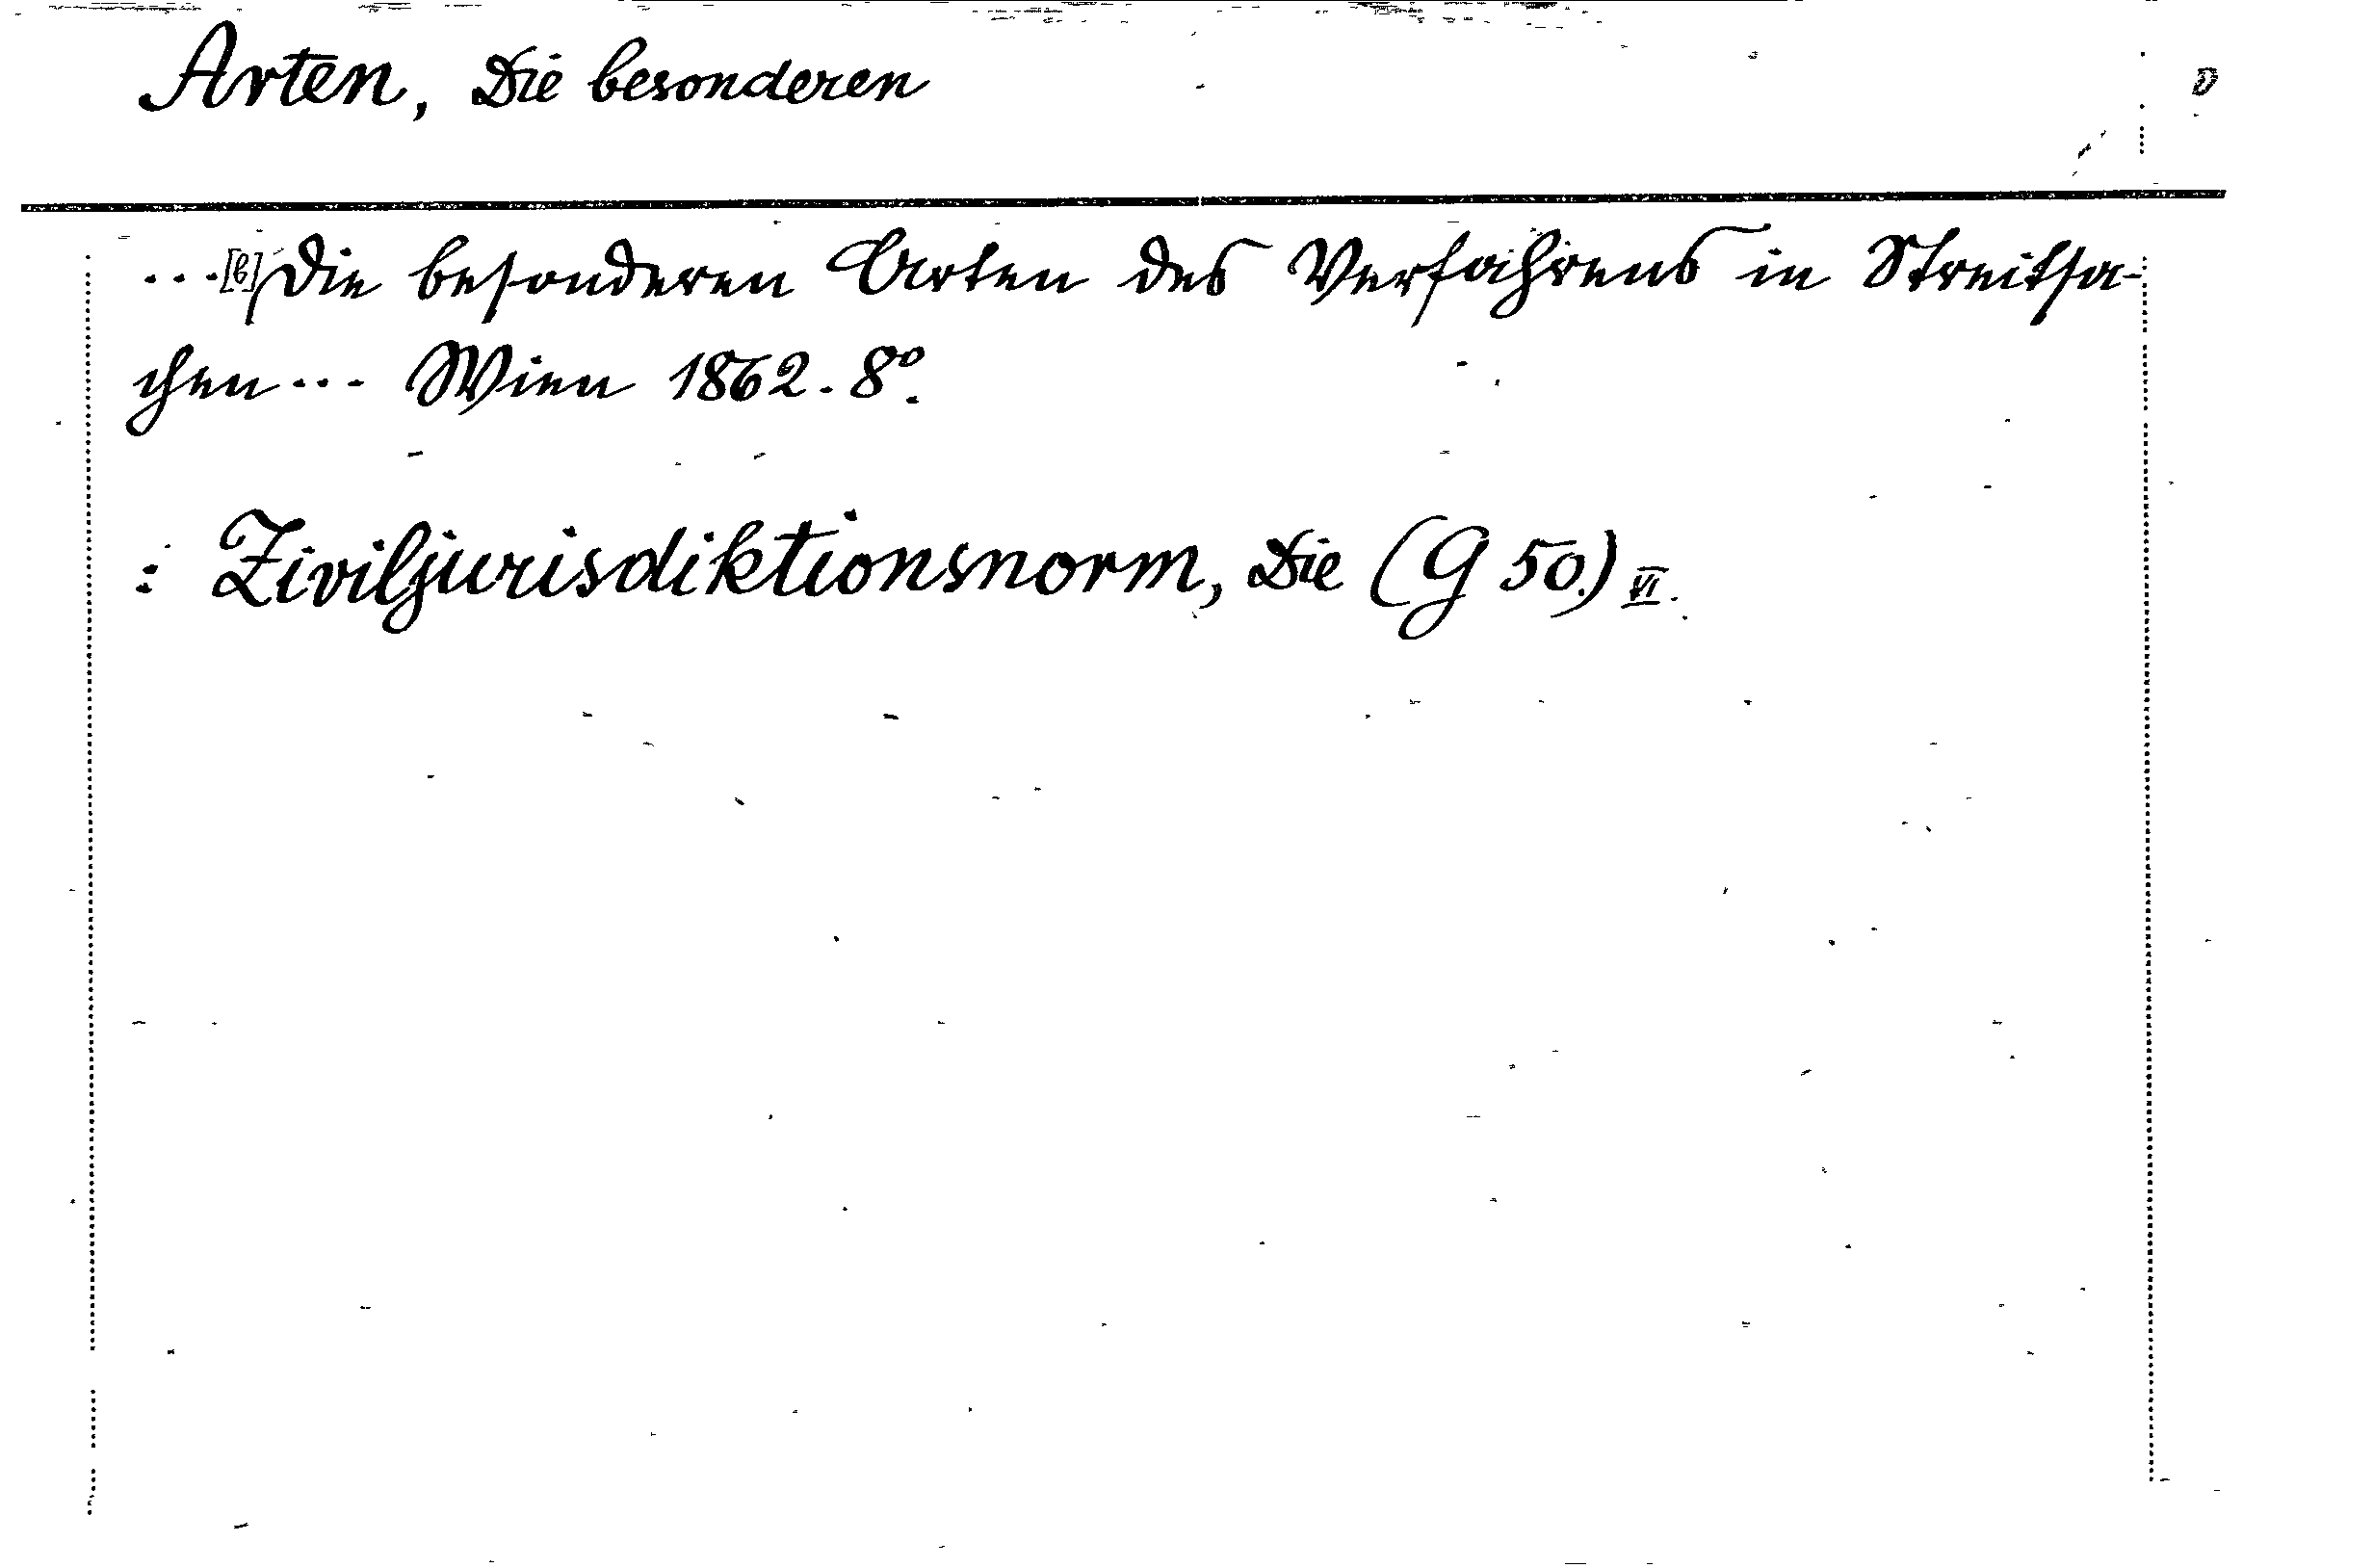 Arten, Die besonderen
...[b] Die besonderen Arten des Verfahrens in Streitsa-
chen... Wien 1862. 8°.
: Ziviljurisdiktionsnorm, Die (G 50.) VI.